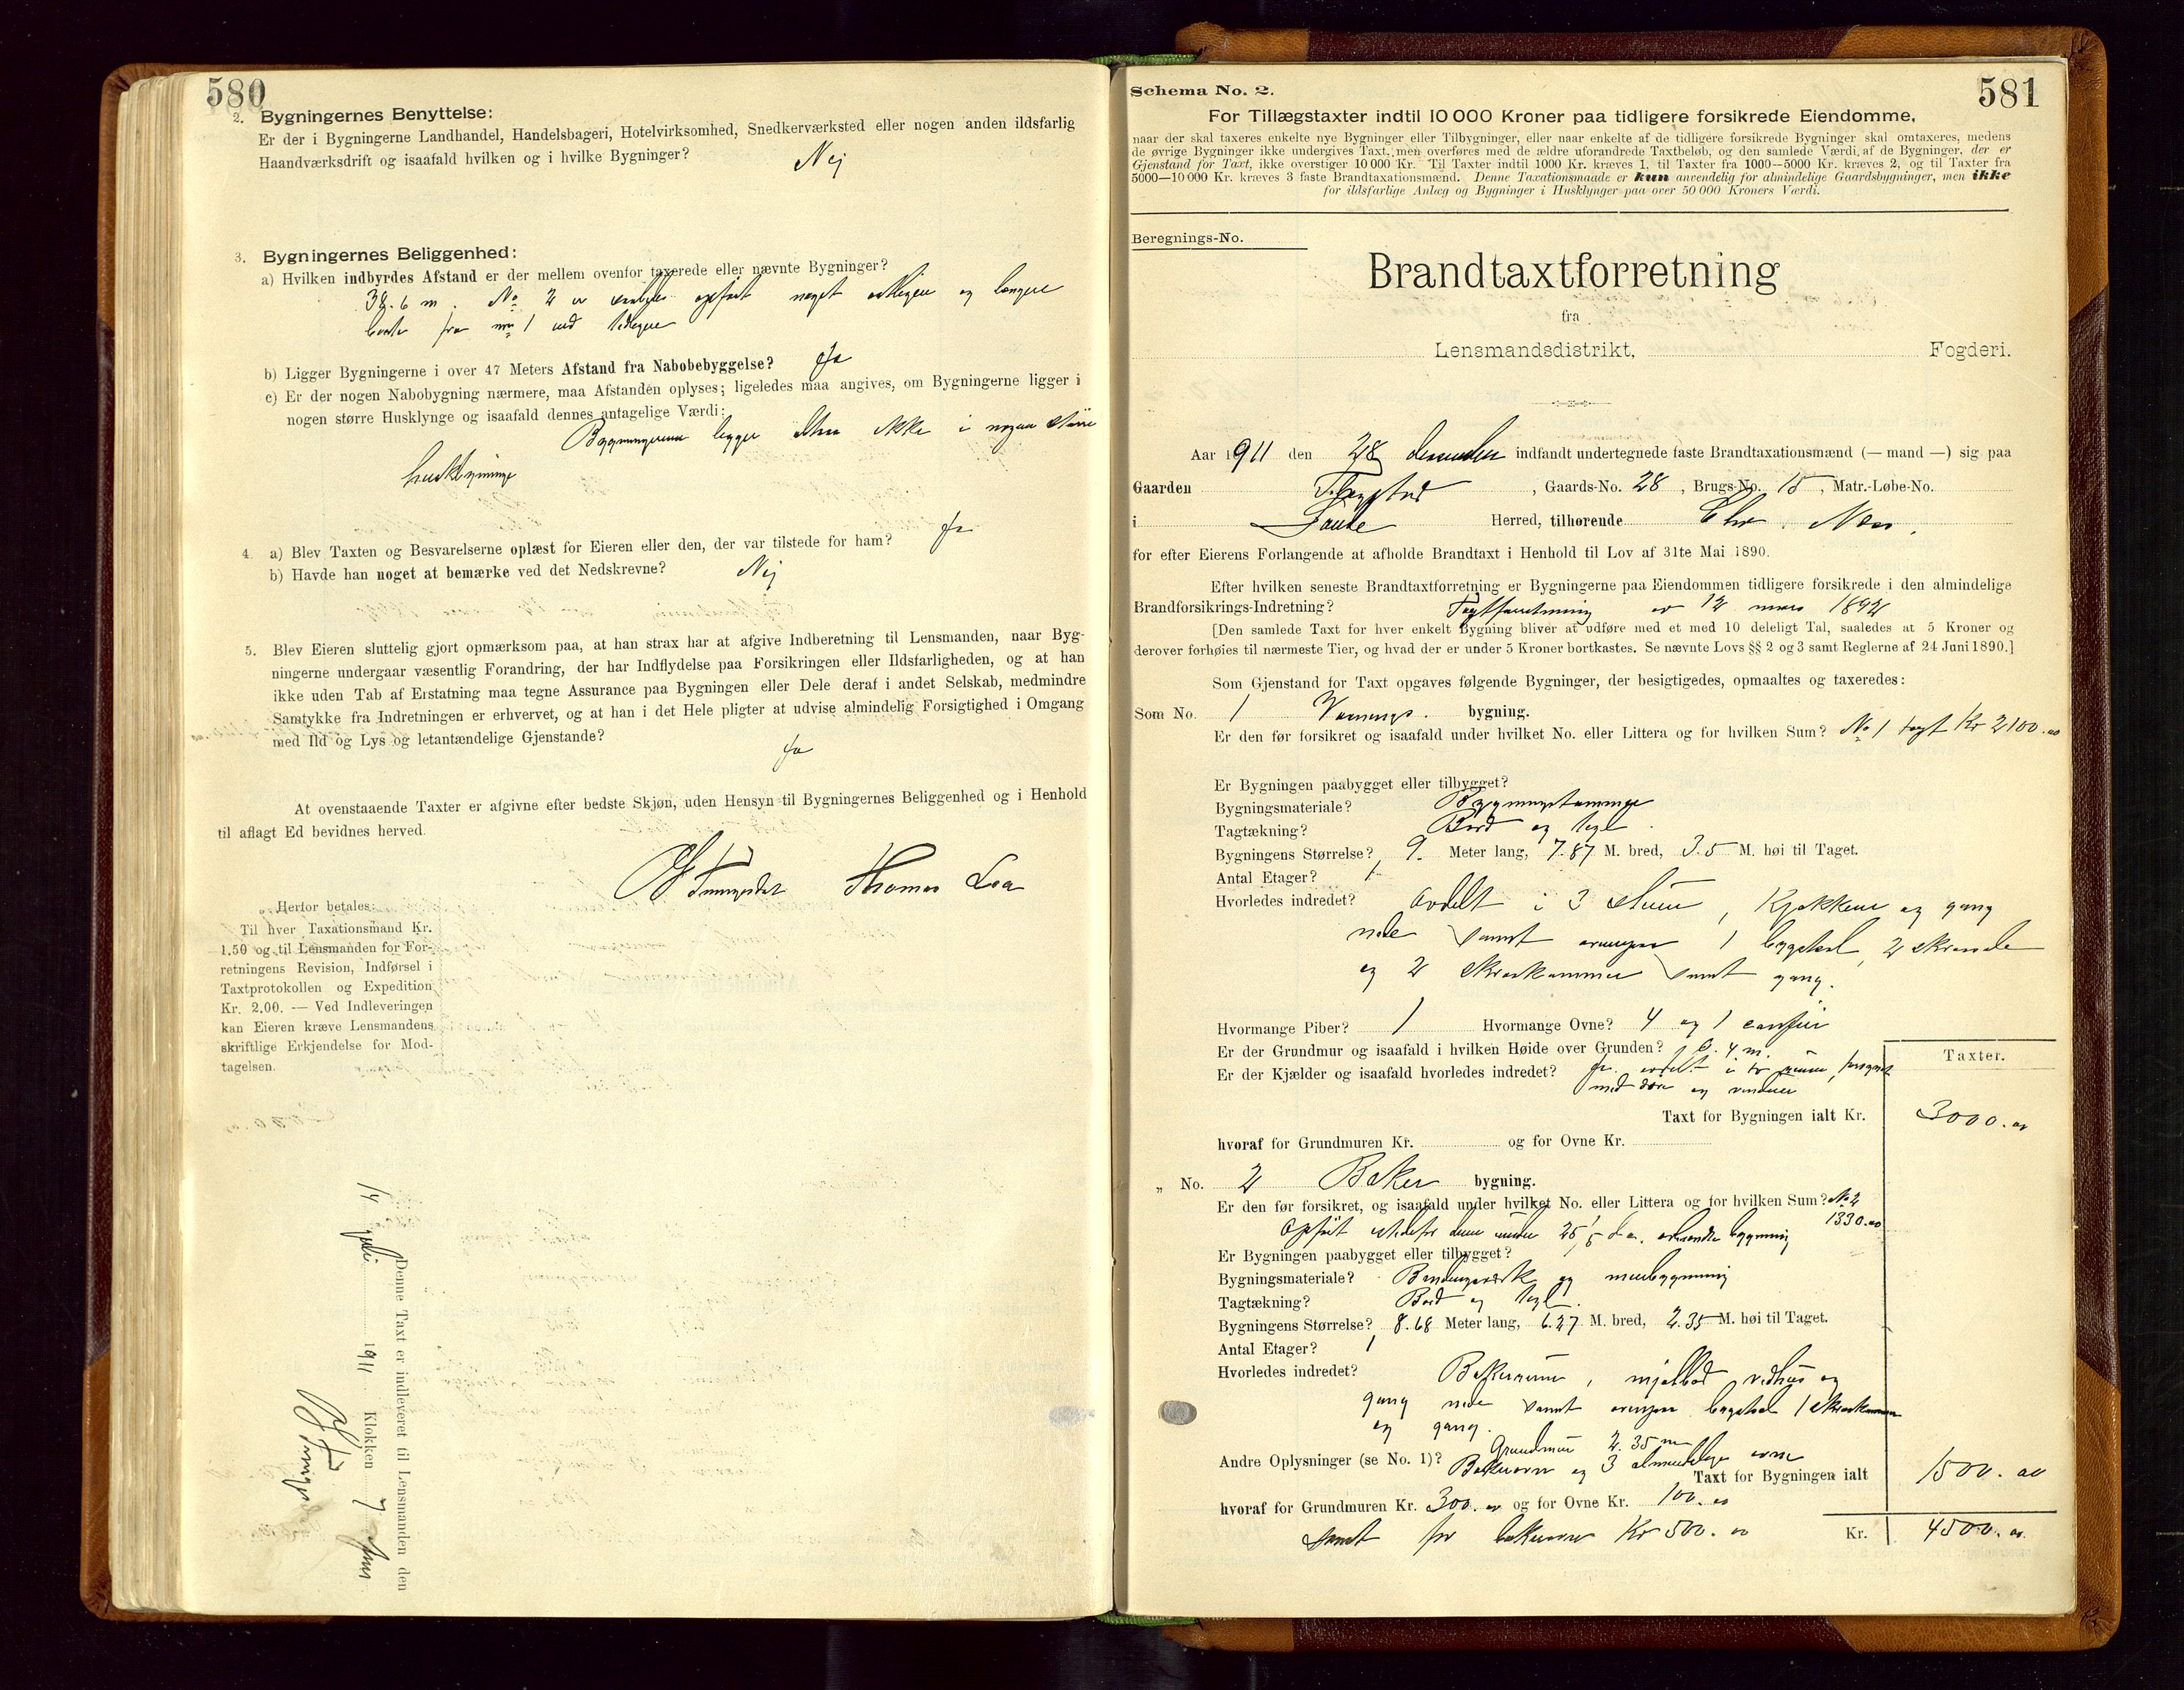 580
2. Bygningernes Benyttelse:
Er der i Bygningerne Landhandel, Handelsbageri, Hotelvirksomhed, Snedkerværksted eller nogen anden ildsfarlig
Haandværksdrift og isaafald hvilken og i hvilke Bygninger? Nej
3. Bygningernes Beliggenhed:
a) Hvilken indbyrdes Afstand er der mellem ovenfor taxerede eller nævnte Bygninger?
m. No 2 er opført noget og længere
fra no 1 end
b) Ligger Bygningerne i over 47 Meters Afstand fra Nabobebyggelse? Ja
c) Er der nogen Nabobygning nærmere, maa Afstanden oplyses; ligeledes maa angives, om Bygningerne ligger i
nogen større Husklynge og isaafald dennes antagelige Værdi:
Bygningerne ligger altsaa ikke i nogen større
4. a) Blev Taxten og Besvarelserne oplæst for Eieren eller den, der var tilstede for ham? Ja
b) Havde han noget at bemærke ved det Nedskrevne? Nej
5. Blev Eieren sluttelig gjort opmærksom paa, at han strax har at afgive Indberetning til Lensmanden, naar Byg-
ningerne undergaar væsentlig Forandring, der har Indflydelse paa Forsikringen eller Ildsfarligheden, og at han
ikke uden Tab af Erstatning maa tegne Assurance paa Bygningen eller Dele deraf i andet Selskab, medmindre
Samtykke fra Indretningen er erhvervet, og at han i det Hele pligter at udvise almindelig Forsigtighed i Omgang
med Ild og Lys og letantændelige Gjenstande?
Ja
At ovenstaaende Taxter er afgivne efter bedste Skjøn, uden Hensyn til Bygningernes Beliggenhed og i Henhold
til aflagt Ed bevidnes herved.
Thomas Lea
Herfor betales:
Til hver Taxationsmand Kr.
1.50 og til Lensmanden for For-
retningens Revision, Indførsel i
Taxtprotokollen og Expedition
Kr. 2.00. — Ved Indleveringen
kan Eieren kræve Lensmandens
skriftlige Erkjendelse for Mod-
tagelsen.
Denne Taxt er indleveret til Lensmanden den
14 juli 1911 Klokken 7
581
Schema No. 2.
For Tillægstaxter indtil 10 000 Kroner paa tidligere forsikrede Eiendomme,
naar der skal taxeres enkelte nye Bygninger eller Tilbygninger, eller naar enkelte af de tidligere forsikrede Bygninger skal omtaxeres, medens
de øvrige Bygninger ikke undergives Taxt, men overføres med de ældre uforandrede Taxtbeløb, og den samlede Værdi af de Bygninger, der er
Gjenstand for Taxt, ikke overstiger 10 000 Kr. Til Taxter indtil 1000 Kr. kræves 1, til Taxter fra 1000—5000 Kr. kræves 2, og til Taxter fra
5000—10 000 Kr. kræves 3 faste Brandtaxationsmænd. Denne Taxationsmaade er kun anvendelig for almindelige Gaardsbygninger, men ikke
for ildsfarlige Anlæg og Bygninger i Husklynger paa over 50 000 Kroners Værdi.
Beregnings-No.
Brandtaxtforretning
fra
Lensmandsdistrikt, Fogderi.
Aar 1911 den 28 indfandt undertegnede faste Brandtaxationsmænd (— mand —) sig paa
Gaarden , Gaards-No. 28 , Brugs-No. 15 , Matr.-Løbe-No.
i Herred, tilhørende Chr.
for efter Eierens Forlangende at afholde Brandtaxt i Henhold til Lov af 31te Mai 1890.
Efter hvilken seneste Brandtaxtforretning er Bygningerne paa Eiendommen tidligere forsikrede i den almindelige
Brandforsikrings-Indretning? Taxtforretning av 12 mars 1892
[Den samlede Taxt for hver enkelt Bygning bliver at udføre med et med 10 deleligt Tal, saaledes at 5 Kroner og
derover forhøies til nærmeste Tier, og hvad der er under 5 Kroner bortkastes. Se nævnte Lovs §§ 2 og 3 samt Reglerne af 24 Juni 1890.]
Som Gjenstand for Taxt opgaves følgende Bygninger, der besigtigedes, opmaaltes og taxeredes:
Som No. 1 Vaanings bygning.
Er den før forsikret og isaafald under hvilket No. eller Littera og for hvilken Sum? No 1 taxt Kr 2100.00
Er Bygningen paabygget eller tilbygget?
Bygningsmateriale? Bygningstømmer
Tagtækning? Bord og tegl
Bygningens Størrelse? 9. Meter lang, 7.87 M. bred, 3.5 M. høi til Taget.
Antal Etager? 1
Hvorledes indredet? avdelt i 3 stuer, kjøkken og gang
nede samt ovenpaa 1 2
og 2 skraakammer samt gang.
Hvormange Piber? 1 Hvormange Ovne? 4 og 1
Er der Grundmur og isaafald i hvilken Høide over Grunden? 0.4 m.
Er der Kjælder og isaafald hvorledes indredet? Ja avdelt i to rum,
med døre og vinduer
Taxter.
Taxt for Bygningen ialt Kr. 3000.00
hvoraf for Grundmuren Kr. og for Ovne Kr.
„ No. 2 Baker bygning.
Er den før forsikret, og isaafald under hvilket No. eller Littera og for hvilken Sum? No 2
1330.00
Opført istedefor den under 25/5 d.a. bygning
Er Bygningen paabygget eller tilbygget?
Bygningsmateriale? Bindingsverk og murbygning
Tagtækning? Bord og tegl.
Bygningens Størrelse? 8.68 Meter lang, 6.27 M. bred, 2.35 M. høi til Taget.
Antal Etager? 1
Hvorledes indredet? Bakerrum, vedhus og
gang nede samt ovenpaa 1 skraakammer
og gang.
Grundmur 2.35 m
Andre Oplysninger (se No. 1)? Bakerovn og 3 almindelige ovne
Taxt for Bygningen ialt 1500.00
hvoraf for Grundmuren Kr. 300.00 og for Ovne Kr. 100.00
samt for bakerovn Kr 500.00 Kr. 4500.00